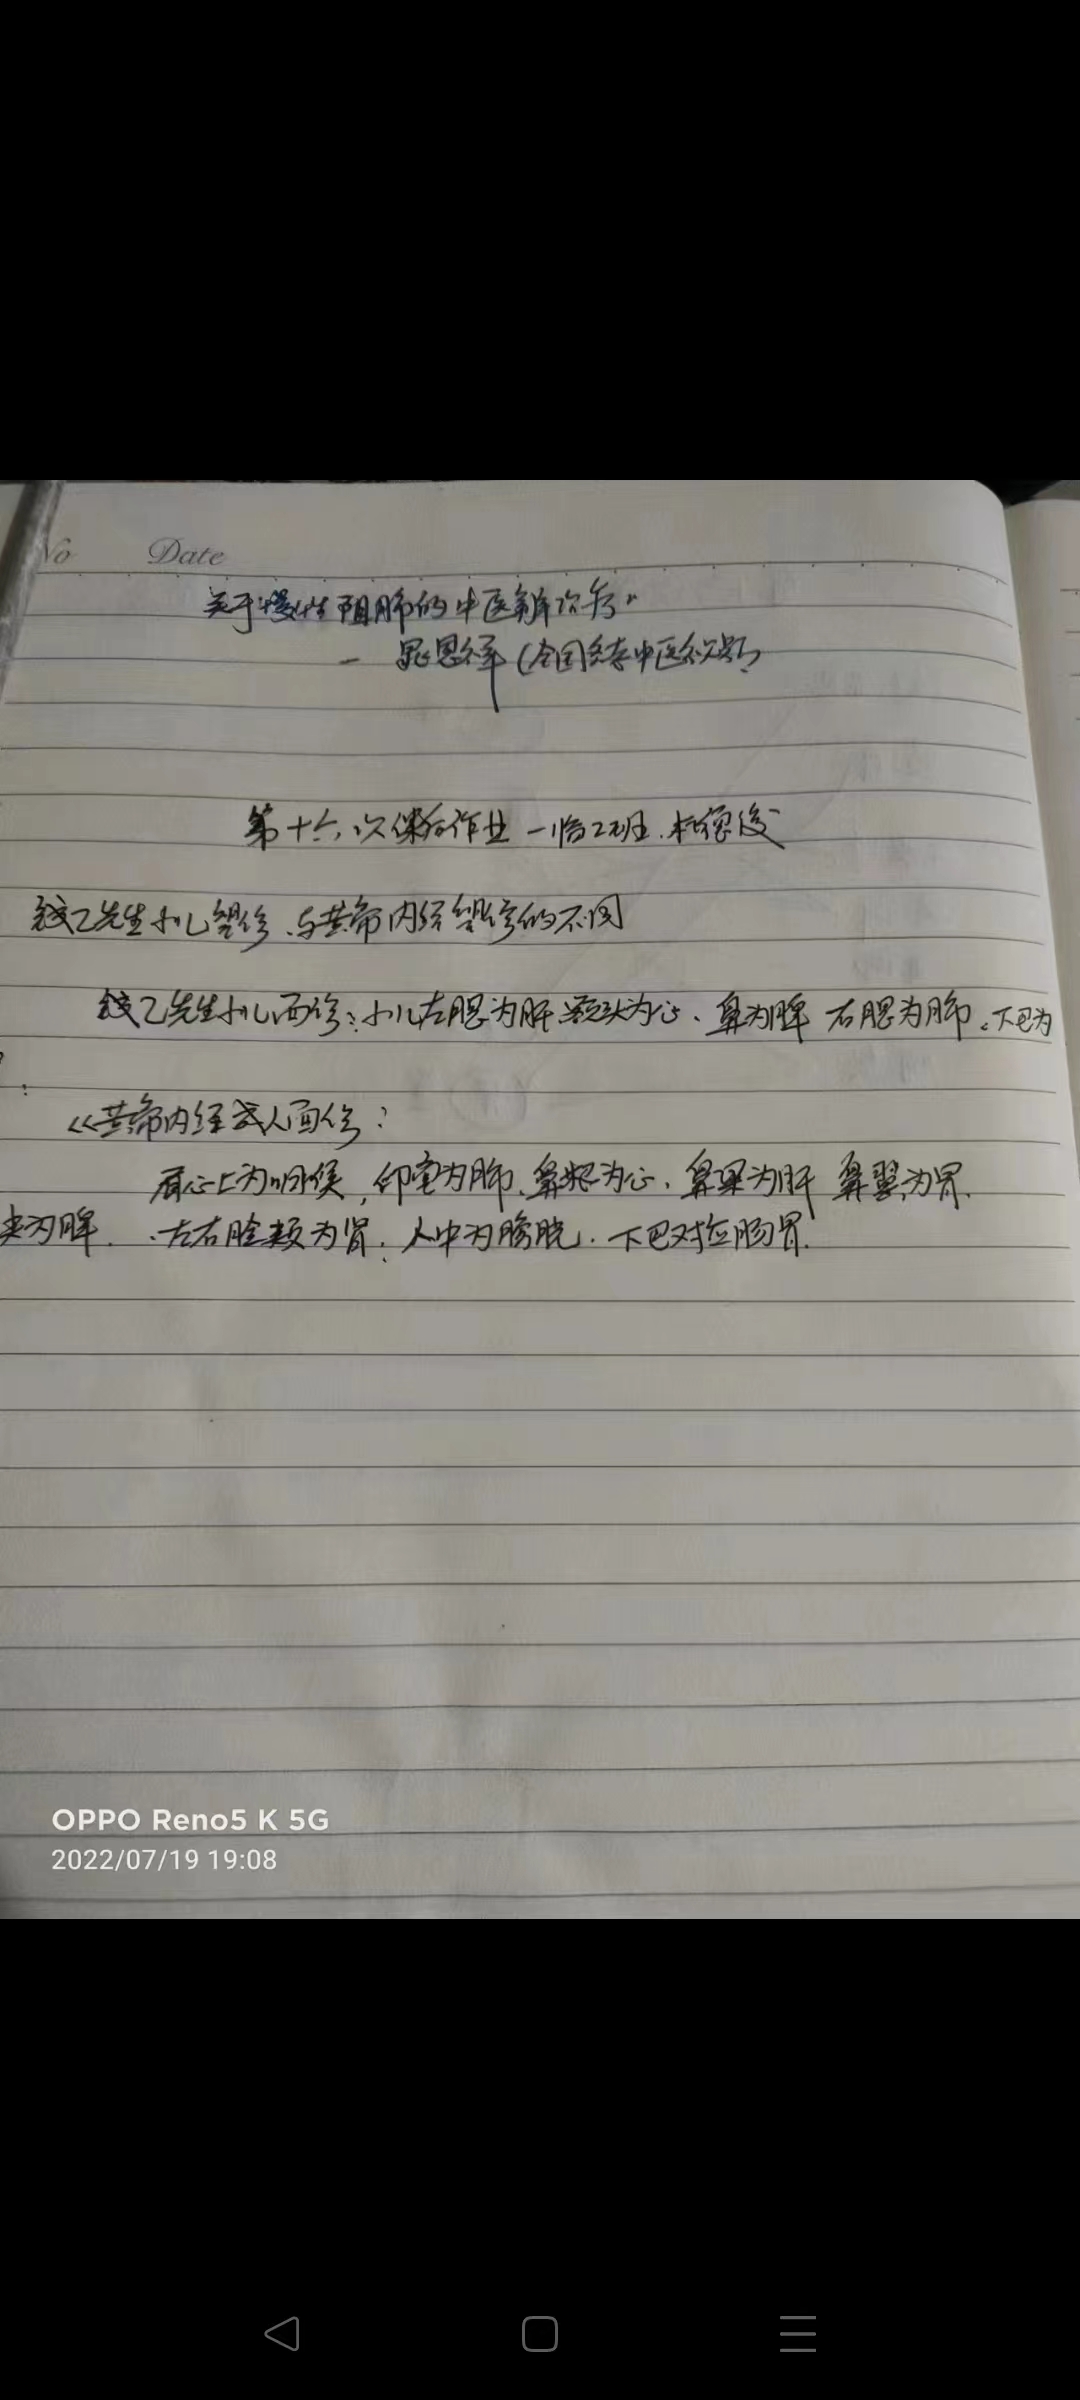 No Date
关于慢性阻肺的中医辨治
晁恩祥(全国名老中医
第十六次课后作业 一临二班. 德俊
钱乙先生小儿望诊、与黄帝内经望诊的不同
钱乙先生小儿面诊: 小儿左腮为肝 额头为心、鼻为脾 右腮为肺.下巴为
:
《黄帝内经成人面诊:
眉心上为咽侯,印堂为肺、鼻根为心、鼻梁为肝 鼻翼为胃.
尖为脾. 左右脸颊为肾. 人中为膀胱. 下巴对应肠胃.
OPPO Reno5 K 5G
2022/07/19 19:08